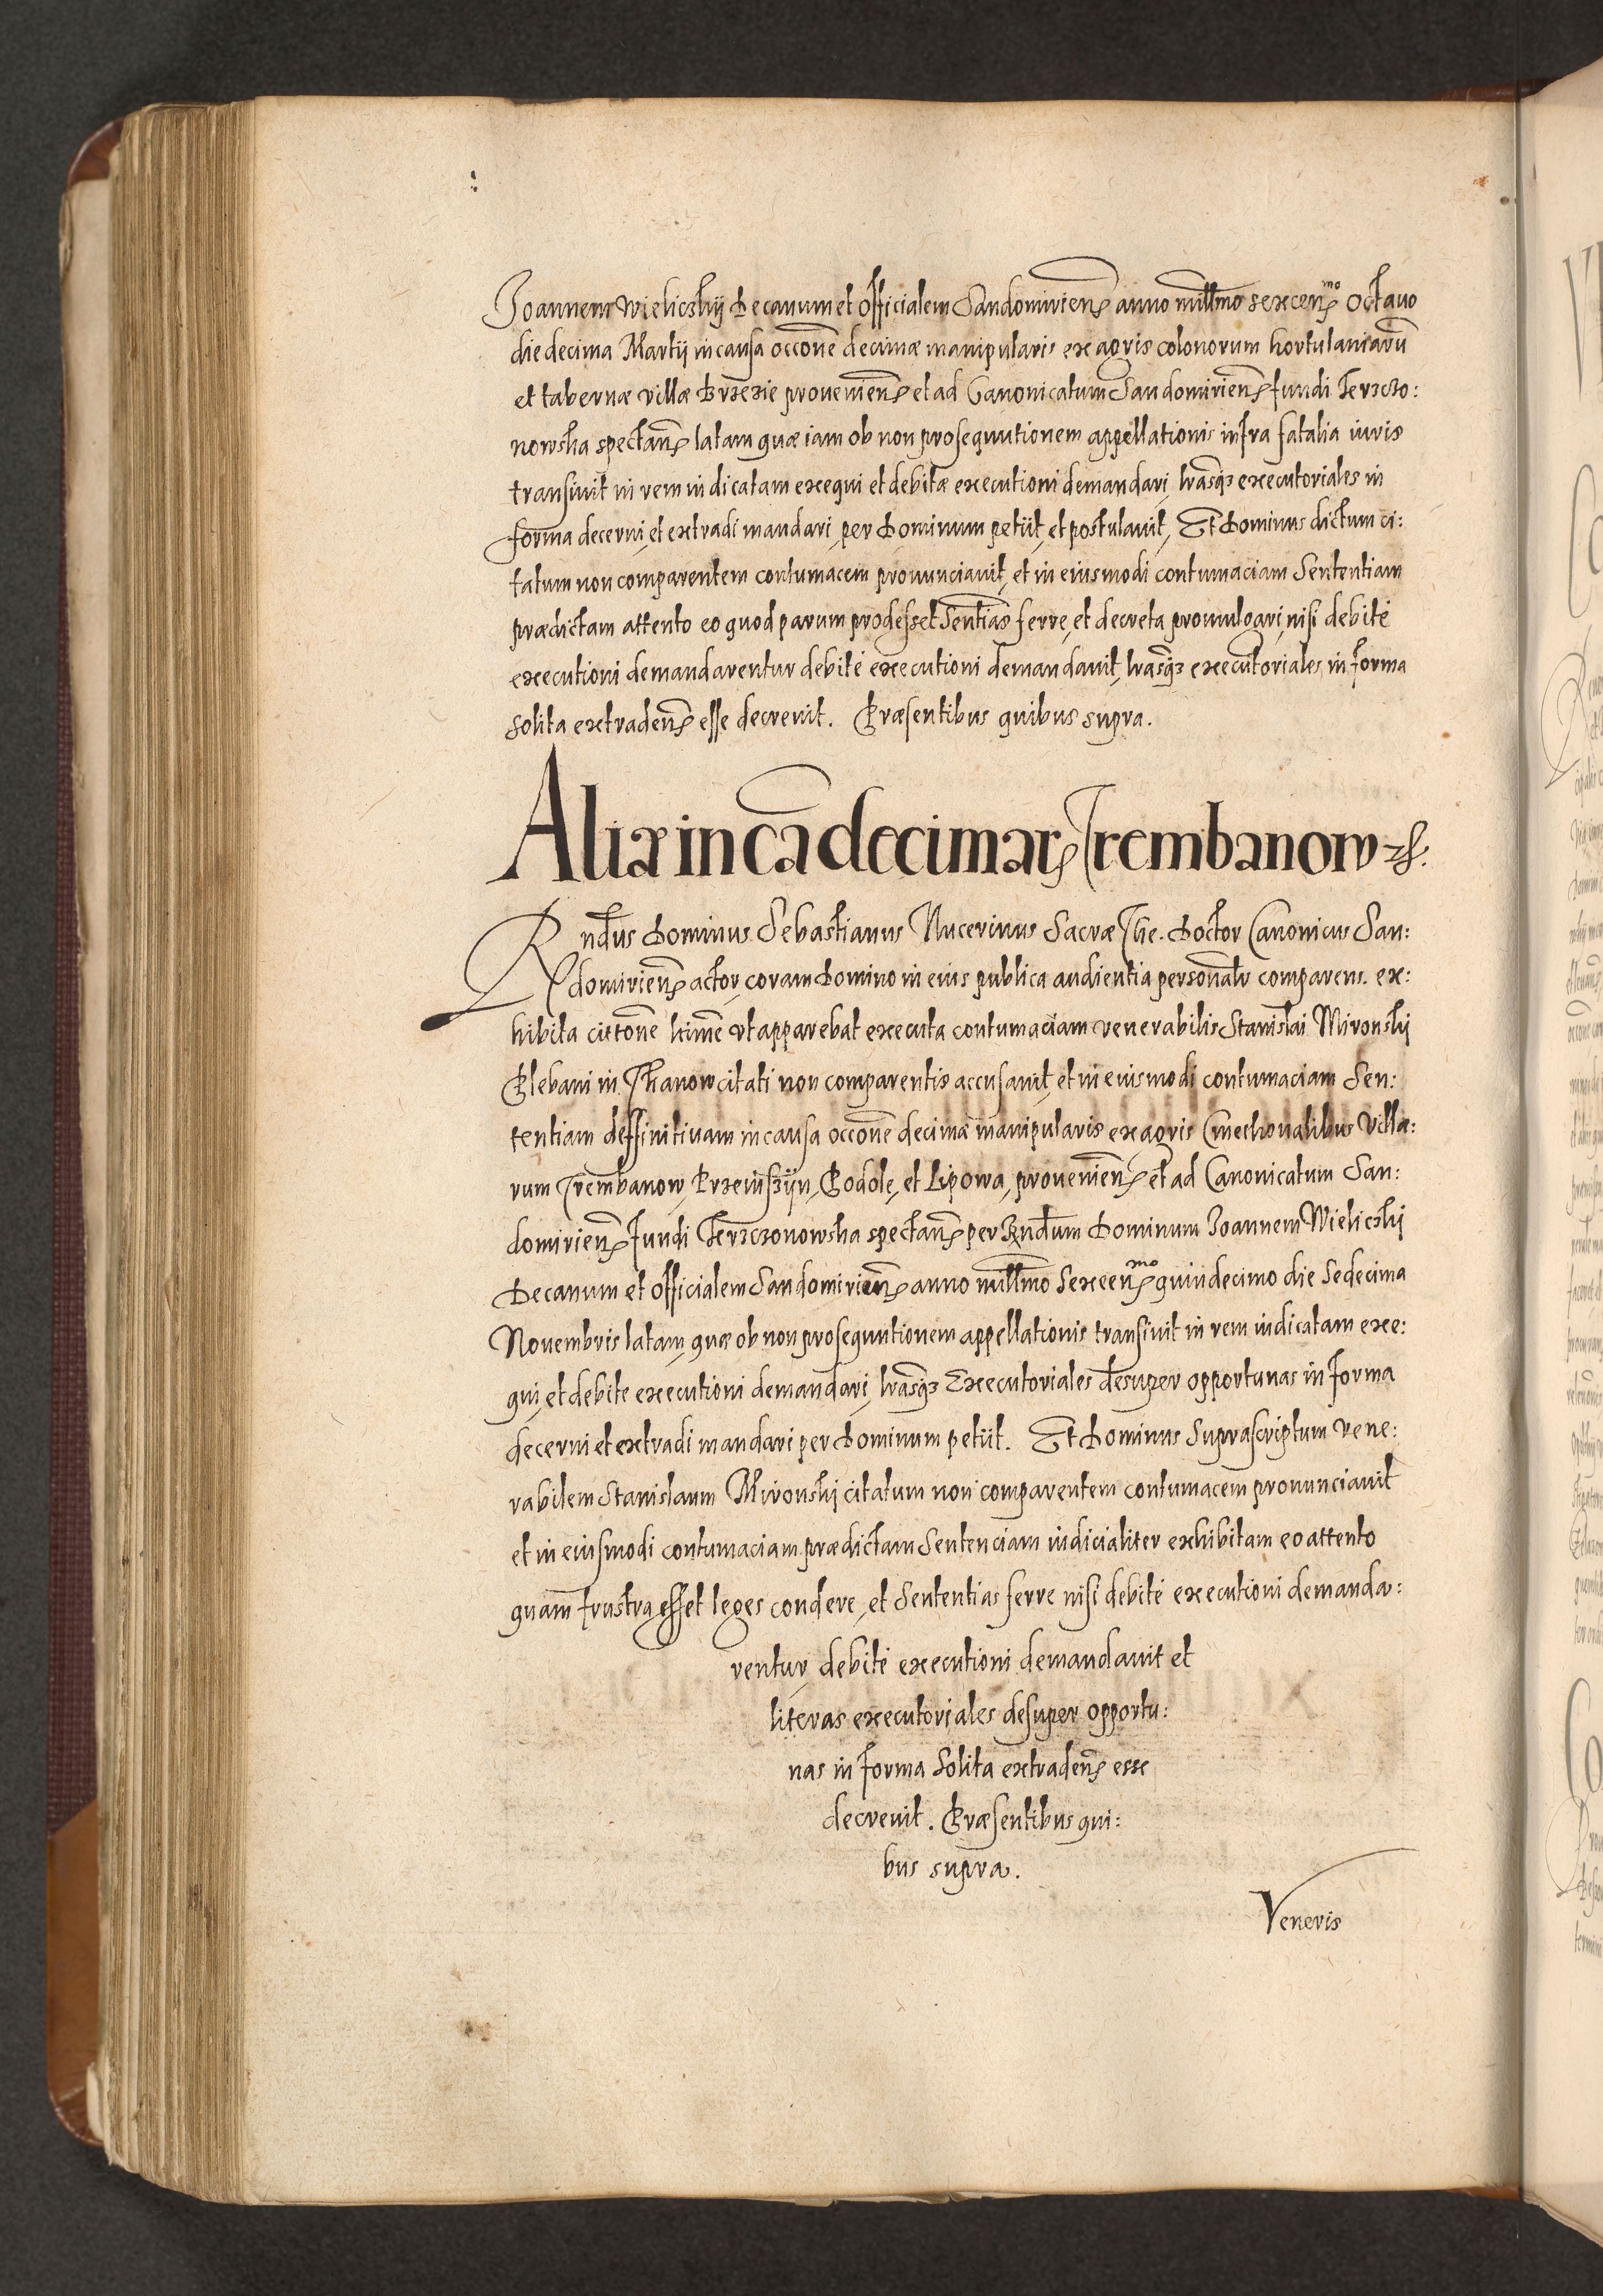 Joannem Wieliczkij Decanum et Officialem Sandomirieñ anno mill̃mo sexceñmo Octauo
die decima Martij in causa occõne decimæ manipularis ex agris colonorum hortulaniarũ
et tabernæ villæ Brzezie prouenieñ et ad Canonicatum Sandomirieñ fundi
nowska spectañ latam quæ iam ob non prosequutionem appellationis infra fatalia iuris
transiuit in rem iudicatam exequi et debitæ executioni demandari, lr̃asq₃ executoriales in
forma decerni, et extradi mandari, per Dominum petiit, et postulauit, Et Dominus dictum ci:
tatum non comparentem contumacem pronunciauit, et in eiusmodi contumaciam Sententiam
prædictam attento eo quod parum prodesset Sentĩas ferre, et decreta promulgari, nisi debitè
executioni demandarentur debitè executioni demandauit, lr̃asq₃ executoriales, in forma
solita extradeñ esse decreuit. Præsentibus quibus supra.
Alia in cã decimar Trembanow
Rndus Dominus Sebastianus Nucerinus Sacræ The. Doctor Canonicus San:
domirieñ actor, coram Domino in eius publica audientia personalr comparens. ex:
hibita cittõne ltimẽ vt apparebat executa contumaciam venerabilis Stanislai Mironski
Plebani in Thanow citati non comparentis accusauit, et in eiusmodi contumaciam Sen:
tentiam deffinitiuam in causa occõne decimæ manipularis ex agris Cmethonalibus Villa:
rum Trembanow, Godolę, et Lipowa, prouenieñ et ad Canonicatum San:
domirieñ fundi spectañ per Rndum Dominum Joannem Wieliczkij
Decanum et Officialem Sandomirieñ anno mill̃mo Sexceñmo quindecimo die Sedecima
Nouembris latam, quæ ob non prosequutionem appellationis transiuit in rem iudicatam exe:
qui, et debite executioni demandari, lr̃asq₃ Executoriales desuper opportunas in forma
decerni et extradi mandari per Dominum petiit. Et Dominus Suprascriptum vene:
rabilem Stanislaum Mironski citatum non comparentem contumacem pronunciauit
et in eiusmodi contumaciam prædictam Sentenciam iudicialiter exhibitam eo attento
quam frustra esset leges condere, et Sententias ferre nisi debitè executioni demanda:
rentur, debitè executioni demandauit et
literas executoriales desuper opportu:
nas in forma Solita extradeñ esse
decreuit. Præsentibus qui:
bus supra.
Veneris